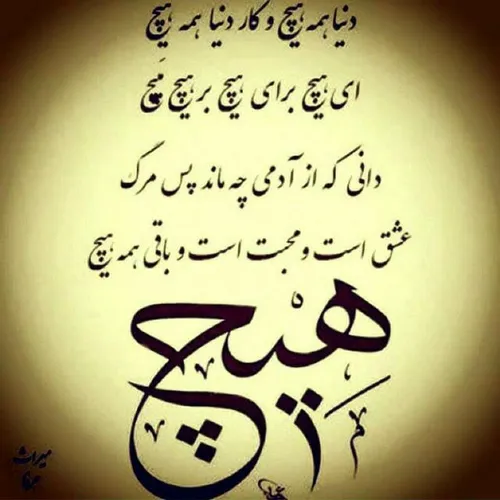 دنیا همه هیچ و کار دنیا همه هیچ
ای هیچ برای هیچ بر هیچ مَپیچ
دانی که از آدمی چه ماند پس مرگ
عشق است و محبت است و باقی همه هیچ
هیچ
میراث